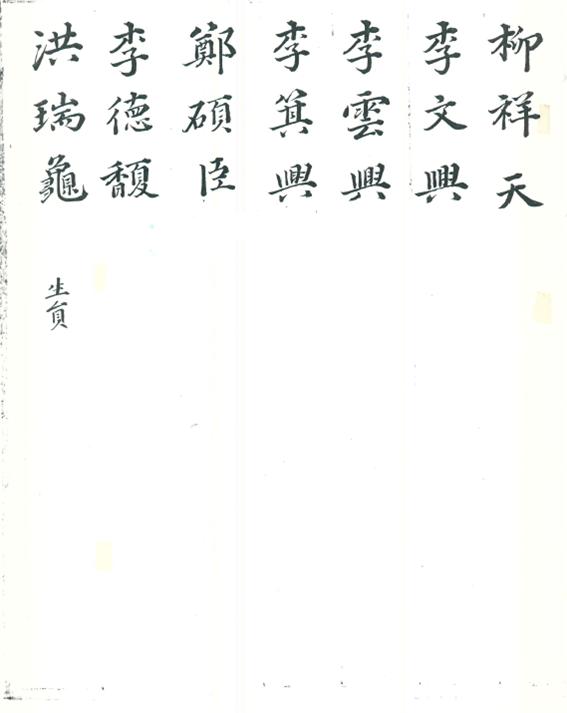 柳祥天
李文興
李雲興
李箕興
鄭碩臣
李德馥
洪瑞龜 生員